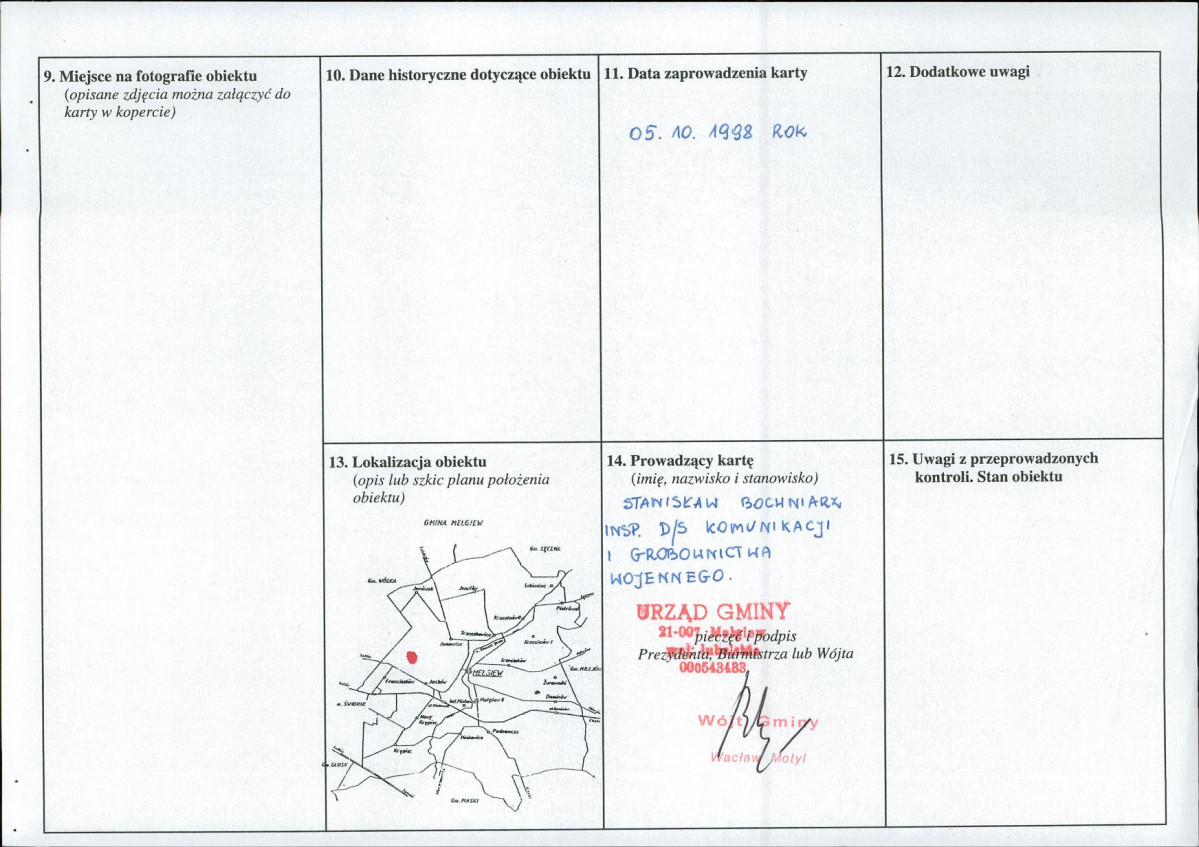 9. Miejsce na fotografie obiektu
(opisane zdjęcia można załączyć do
karty w kopercie)
10. Dane historyczne dotyczące obiektu
11. Data zaprowadzenia karty
05. 10. 1998 ROK
12. Dodatkowe uwagi
13. Lokalizacja obiektu
(opis lub szkic planu położenia
obiektu)
GMINA MEŁGIEW
Gm. ŁĘCZNA
Gm. WÓLKA
Janówek
Józefów
Lubieniec
Piotrówek
Krzesimów
Trzeszkowice
Krzesimów I
Janowice
MEŁGIEW
Gm. MILEJÓW
Franciszków
Jacków
Żurawniki
Dominów
Mełgiew II
Nowy
Krępiec
Podzamcze
Minkowice
Krępiec
Gm. GŁUSK
Gm. PIASKI
14. Prowadzący kartę
(imię, nazwisko i stanowisko)
STANISŁAW BOCHNIARZ
INSP. D/S KOMUNIKACJI
I GROBOWNICTWA
WOJENNEGO.
URZĄD GMINY
21-007 Mełgiew
woj. lubelskie
000543483
pieczęć i podpis
Prezydenta, Burmistrza lub Wójta
Wójt Gminy
Wacław Motyl
15. Uwagi z przeprowadzonych
kontroli. Stan obiektu